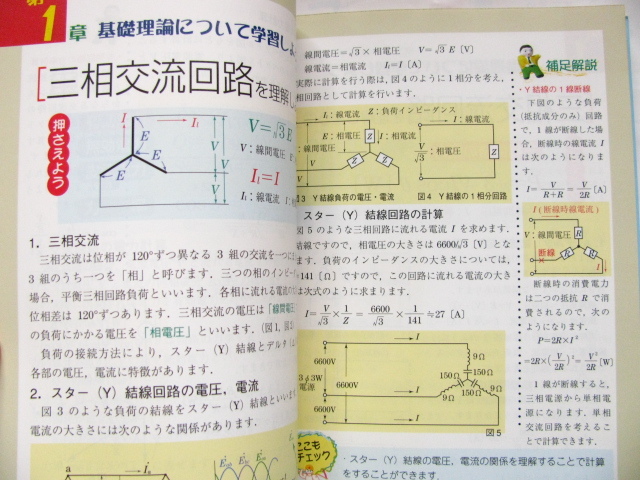 第
1
章 基礎理論について学習し
[三相交流回路を理解し
押さえよう
I
I₁
E
E
E
V=√3 E
V：線間電圧 E
I₁=I
I₁：線電流
V
V
V
1．三相交流
三相交流は位相が 120°ずつ異なる 3 組の交流を一つに
3 組のうち一つを「相」と呼びます．三つの相のインピー
場合，平衡三相回路負荷といいます．各相に流れる電流の
位相差は 120°ずつあります．三相交流の電圧は「線間電圧
の負荷にかかる電圧を「相電圧」といいます．(図1，図
負荷の接続方法により，スター（Y）結線とデルタ
各部の電圧，電流に特徴があります．
2．スター（Y）結線回路の電圧，電流
図 3 のような負荷の結線をスター（Y）結線といい
電流の大きさには次のような関係があります．
a
線間電圧=√3×相電圧 V=√3 E [V]
線電流=相電流 I₁=I [A]
実際に計算を行う際は，図 4 のように 1 相分を考え，
相回路として計算を行います．
I₁：線電流 Z：負荷インピーダンス
E：相電圧
I：相電流
Z
Z
Z
I：線電流
V/√3：相電圧
Z
図3 Y 結線負荷の電圧・電流
図4 Y 結線の 1 相分回路
スター（Y）結線回路の計算
図 5 のような三相回路に流れる電流 I を求めます．
結線ですので，相電圧の大きさは 6600/√3 [V] とな
ます．負荷のインピーダンスの大きさについては，
141 [Ω] ですので，この回路に流れる電流の大き
は次式のように求まります．
I=V/√3×1/Z=6600/√3×1/141≒27 [A]
I
6600V
6600V
3φ3W
電源
6600V
I
I
9Ω
150Ω
150Ω
150Ω
9Ω
9Ω
図5
ここも
チェック
・スター（Y）結線の電圧，電流の関係を理解することで計算
をすることができます．
補足解説
・Y 結線の 1 線断線
下図のような負荷
（抵抗成分のみ）回路
で，1 線が断線した場
合，断線時の線電流 I
は次のようになりま
す．
I=V/R+R=V/2R [A]
I（断線時線電流）
V：線間電圧
R
R
R
断線
I
断線時の消費電力
は二つの抵抗 R で消
費されるので，次の
ようになります．
P=2R×I²
=2R×(V/2R)²=V²/2R [W]
1 線が断線すると，
三相電源から単相電
源になります．単相
交流回路を考えるこ
とで計算できます．